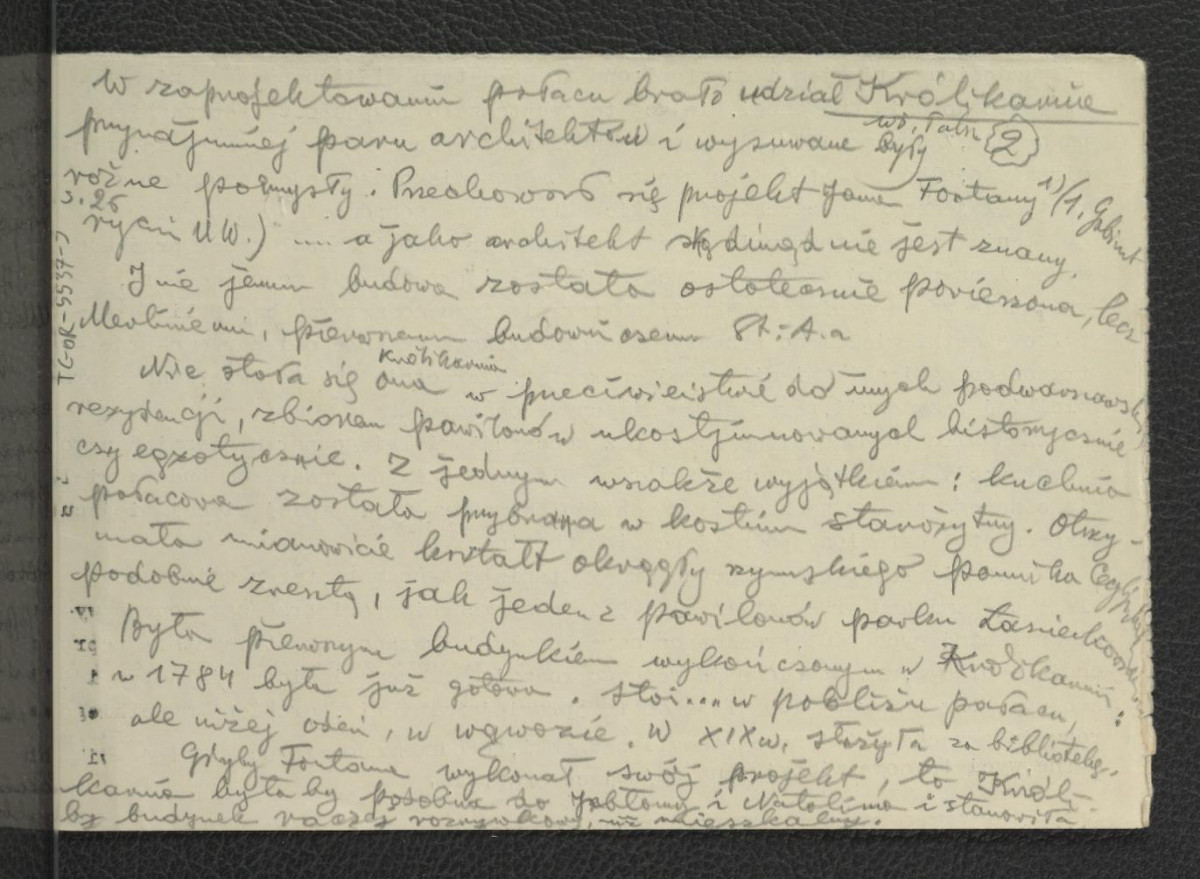 W zaprojektowaniu pałacu brało udział Królikarnia
przynajmniej paru architektów i wysuwane były 2
wł. Tatk.
różne pomysły. Przechował się projekt Jana Fontany 1)/1. Gabinet
s. 26
rycin UW.) .... a jako architekt skądinąd nie jest znany.
I nie jemu budowa została ostatecznie powierzona, lecz
Merliniemu, pierwszemu budowniczemu St. A.a
Królikarnia
Nie stała się ona w przeciwieństwie do innych podwarszawskich
rezydencji, zbiorem pawilonów ukostjumowanych historycznie
czy egzotycznie. Z jednym wszakże wyjątkiem: kuchnia
pałacowa została przybrana w kostium starożytny. Otrzy-
mała mianowicie kształt okrągły rzymskiego pomnika Cecylii
podobnie zresztą, jak jeden z pawilonów parku Łazienkowsk.
Była pierwszym budynkiem wykończonym w Królikarni:
w 1784 była już gotowa. Stoi... w pobliżu pałacu,
ale niżej odeń, w wąwozie. W XIX w. służyła za bibliotekę.
Gdyby Fontana wykonał swój projekt, to Króli-
karnia byłaby podobna do Jabłonny i Natolina i stanowiła
by budynek raczej rozrywkowy, niż mieszkalny.
TG-OR-5537-5